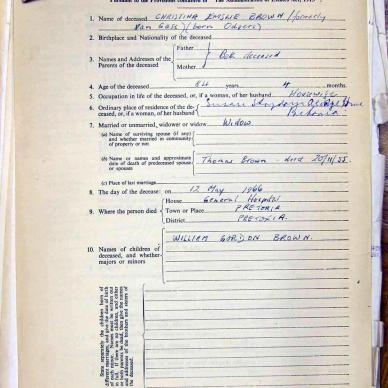 Pursuant to the Provisions contained in "The Administration of Estates Act, 1913".
1. Name of deceased CHRISTINA EMSLIE BROWN (formerly
Van Gass) (born Odgers)
2. Birthplace and Nationality of the deceased
3. Names and Addresses of the Parents of the deceased
Father
Mother
Both deceased
4. Age of the deceased 84 years 4 months.
5. Occupation in life of the deceased, or, if a woman, of her husband Housewife
6. Ordinary place of residence of the deceased, or, if a woman, of her husband
Pretoria
7. Married or unmarried, widower or widow Widow
(a) Name of surviving spouse (if any) and whether married in community of property or not
(b) Name or names and approximate date of death of predeceased spouse or spouses
Thomas Brown - died 20/11/55.
(c) Place of last marriage
8. The day of the decease: on 12 May 1966
9. Where the person died
House General Hospital
Town or Place PRETORIA
District PRETORIA.
10. Names of children of deceased, and whether majors or minors
WILLIAM GORDON BROWN.
State separately the children born of different marriages, and give the date of birth